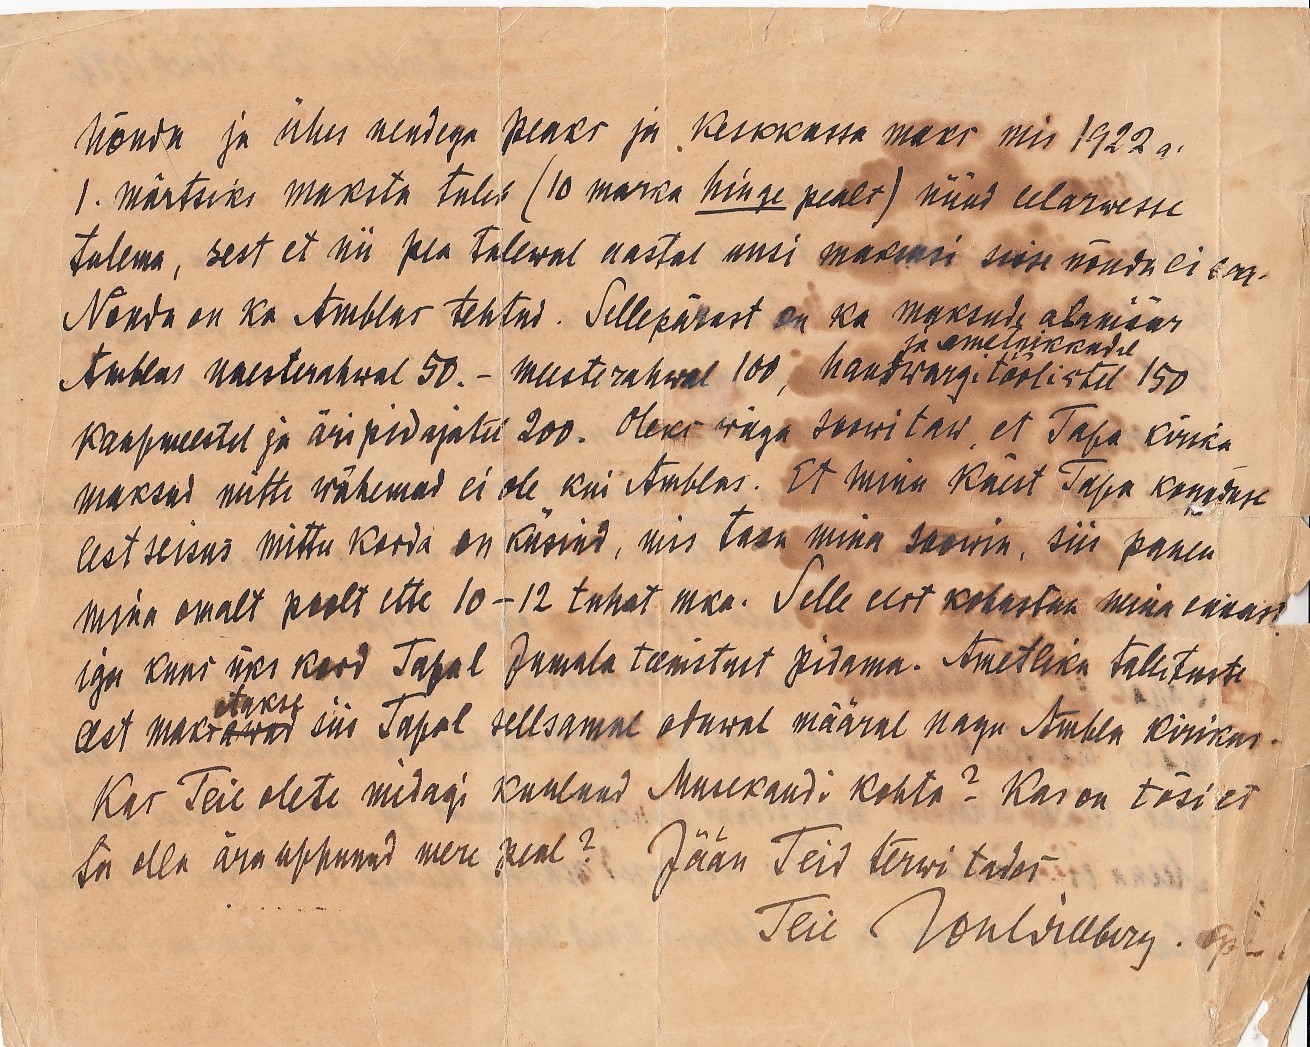 Nõnda ja ühes nendega peaks ja keskkassa maks mis 1922 a.
1. märtsiks maksta tuleb (10 marka hinge pealt) nüüd eelarwesse
tulema, sest et nii pea tulewal aastal uusi maksusi sisse nõuda ei saa.
Nõnda on ka Amblas tehtud. Sellepärast on ka maksude alammäär
ja ametnikkudel
Amblas naesterahwal 50.- meesterahwal 100, handwärgi töölistel 150
kaupmeestel ja äripidajatel 200. Oleks wäga soowitaw, et Tapa kiriku
maksud mitte wähemad ei ole kui Amblas. Et minu käest Tapa koguduse
eestseisus mittu korda on küsind, mis tasu mina soowin, siis panen
mina omalt poolt ette 10-12 tuhat mka. Selle eest kohustun mina ennast
iga kuus üks kord Tapal Jumala teenistust pidama. Ametliku talituste
etakse
eest maks siis Tapal sellsamal oduwal määral nagu Ambla kirikus.
Kas Teie olete midagi kuulnud Musekandi kohta? Kas on tõsi et
ta olla ära uppunud mere peal? Jään Teid terwitades
Teie